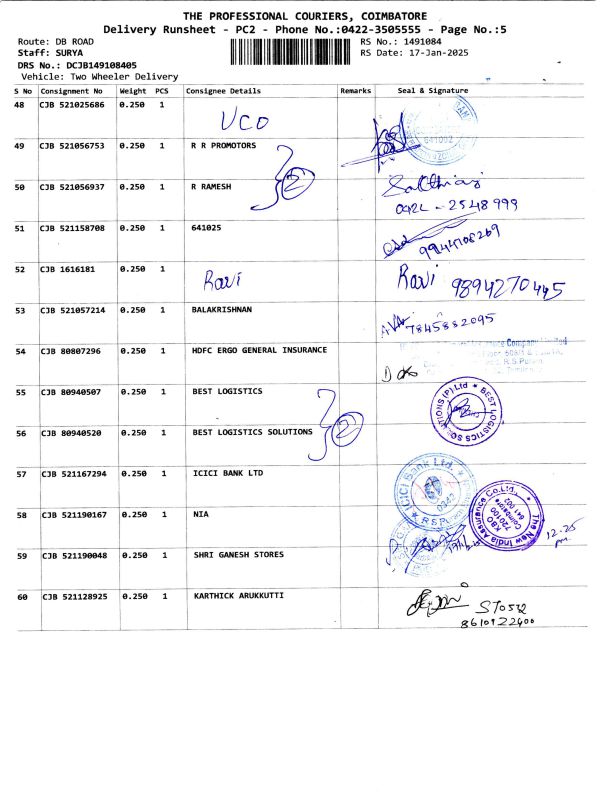 THE PROFESSIONAL COURIERS, COIMBATORE
Delivery Runsheet - PC2 - Phone No.:0422-3505555 - Page No.:5
Route: DB ROAD RS No.: 1491084
Staff: SURYA RS Date: 17-Jan-2025
DRS No.: DCJB149108405
Vehicle: Two Wheeler Delivery
S No Consignment No Weight PCS Consignee Details Remarks Seal & Signature
48 CJB 521025686 0.250 1 UCO
49 CJB 521056753 0.250 1 R R PROMOTORS
2
50 CJB 521056937 0.250 1 R RAMESH
0422 - 2548 999
51 CJB 521158708 0.250 1 641025
9944108269
52 CJB 1616181 0.250 1 Ravi Ravi 9894270445
53 CJB 521057214 0.250 1 BALAKRISHNAN 7845882095
54 CJB 80807296 0.250 1 HDFC ERGO GENERAL INSURANCE
55 CJB 80940507 0.250 1 BEST LOGISTICS
2
BEST LOGISTICS SOLUTIONS (P) Ltd
56 CJB 80940520 0.250 1 BEST LOGISTICS SOLUTIONS
57 CJB 521167294 0.250 1 ICICI BANK LTD
ICICI Bank Ltd.
58 CJB 521190167 0.250 1 NIA
The New India Assurance Co.Ltd.,
KBO
720100
Coimbatore
641 002
12.25
pm
59 CJB 521190048 0.250 1 SHRI GANESH STORES
60 CJB 521128925 0.250 1 KARTHICK ARUKKUTTI
8610122400